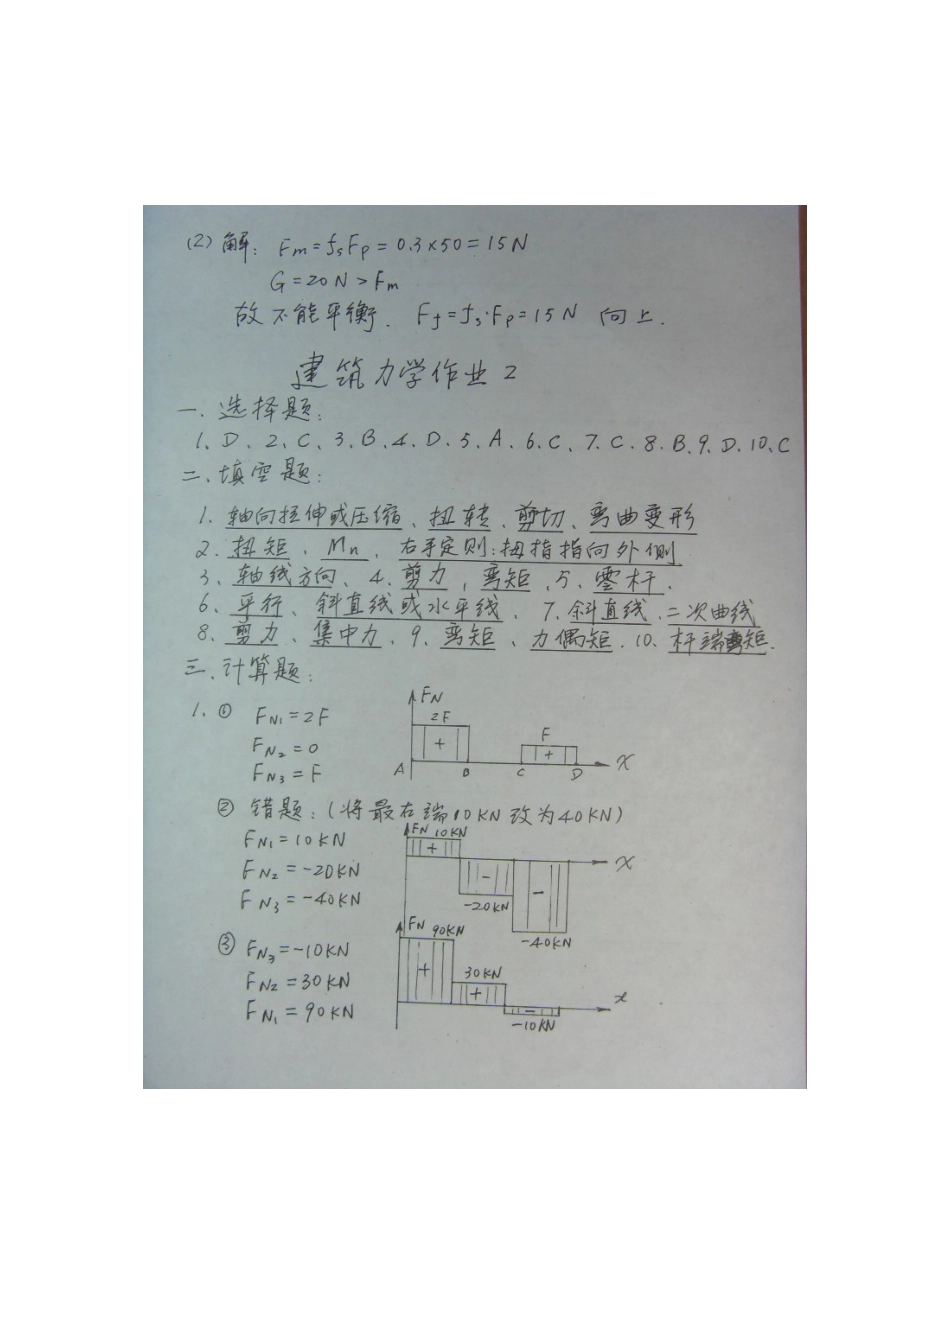 (2) 解: Fm=fsFp=0.3×50=15N
G=20N>Fm
故不能平衡. Ff=fs·Fp=15N 向上.
建筑力学作业2
一.选择题:
1、D、2、C、3、B、4、D、5、A、6、C、7、C、8、B、9、D、10、C
二、填空题:
1. 轴向拉伸或压缩、扭转、剪切、弯曲变形
2. 扭矩、Mn、右手定则:拇指指向外侧
3、轴线方向、4.剪力,弯矩,5、零杆.
6、平行、斜直线或水平线、7.斜直线、二次曲线
8、剪力、集中力、9、弯矩、力偶矩.10、杆端弯矩.
三、计算题:
1. ① FN1=2F
FN2=0
FN3=F
FN
2F
+
F
+
A B C D X
② 错题:(将最右端10KN改为40KN)
FN1=10KN
FN2=-20KN
FN3=-40KN
FN 10KN
+
X
-
-
-20KN
-40KN
③ FN3=-10KN
FN2=30KN
FN1=90KN
FN 90KN
+
30KN
+
x
-
-10KN